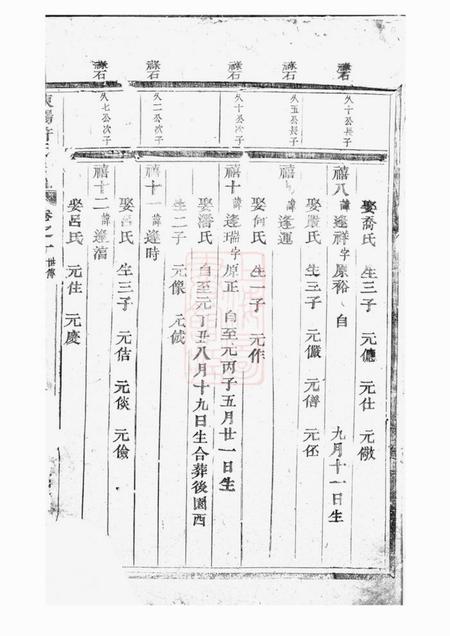 久十公長子
久五公長子
久十公次子
久二公次子
久七公次子
娶喬氏 生三子 元僡 元仕 元儆
禧八 諱逢祥字原裕 自 九月十一日生
娶嚴氏 生三子 元儼 元僐 元伾
禧 諱逢運
娶何氏 生一子 元作
禧十 諱逢瑞字原正 自至元丙子五月廿一日生
娶潘氏 自至元丁丑八月十九日生合葬後園西
生二子 元像 元
禧十一 諱逢時
娶呂氏 生三子 元佶 元倓 元儉
禧十二 諱逢
娶呂氏 元仕 元慶
卷之
世傳